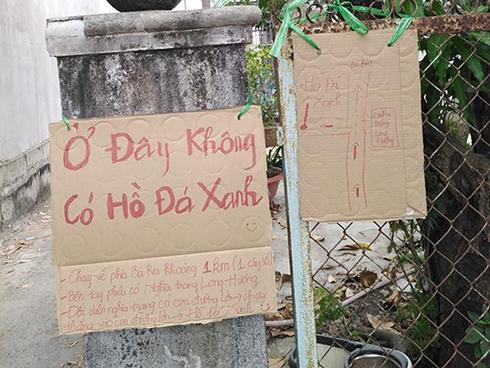 Ở Đây Không
Có Hồ Đá Xanh
- Chạy về phía Bà Rịa Khoảng 1km (1 cây số)
- Bên tay phải có Nghĩa trang Long Hương
- Đối diện nghĩa trang có con đường lớn → chạy
thẳng vào con đường lớn → Hồ Đá Xanh
Bà Rịa
Hồ Đá
Xanh
Nghĩa
trang
Long
Hương